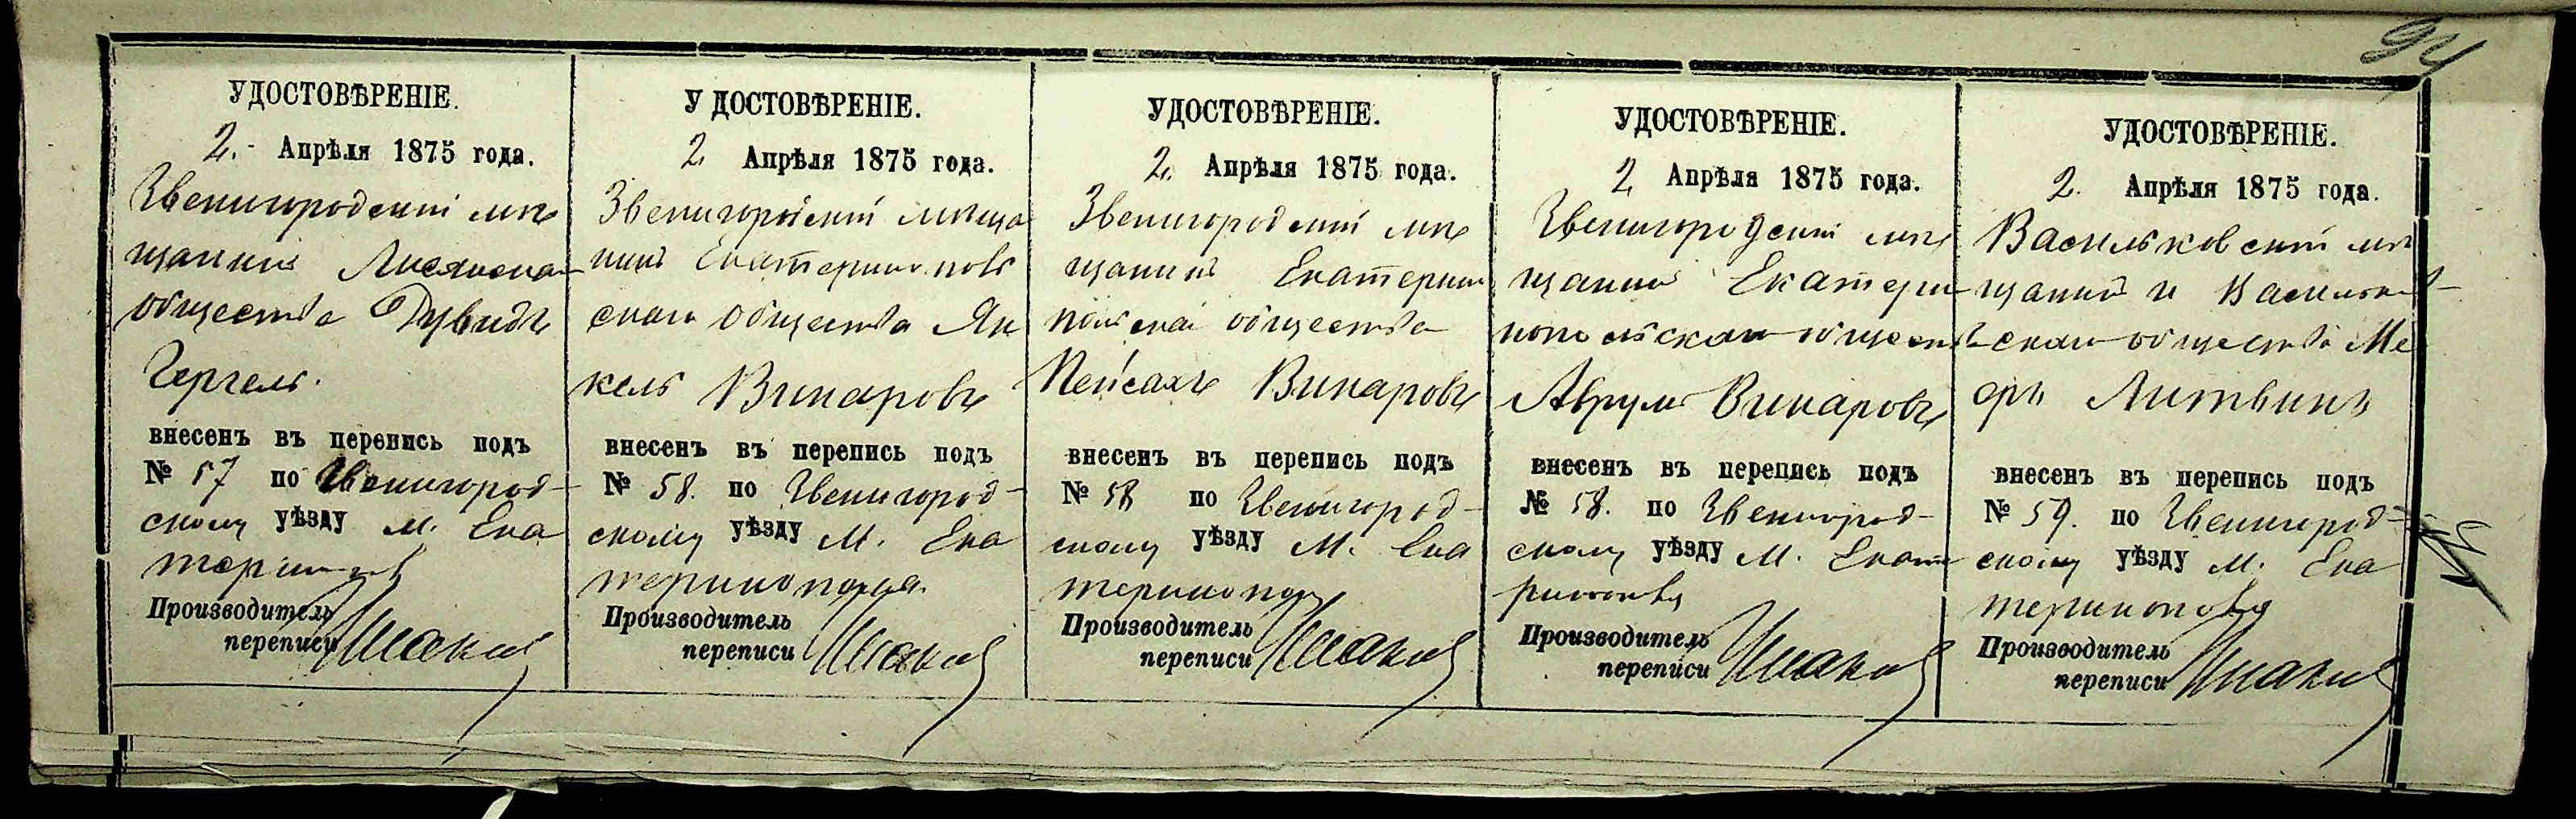 94
УДОСТОВѢРЕНІЕ.
2. Апрѣля 1875 года.
Звенигородскій мѣ
щанинъ Лисянскаго
общества Дувидъ
Гергель.
внесенъ въ перепись подъ
№ 57 по Звенигород-
скому уѣзду м. Ека
Производитель
переписи
УДОСТОВѢРЕНІЕ.
2. Апрѣля 1875 года.
Звенигородскій мѣща
нинъ Екатеринополь
скаго общества Ян
кель Винаровъ
внесенъ въ перепись подъ
№ 58. по Звенигород-
скому уѣзду м. Ека
теринополя.
Производитель
переписи
УДОСТОВѢРЕНІЕ.
2. Апрѣля 1875 года.
Звенигородскій мѣ
щанинъ Екатерино
польскаго общества
Пейсахъ Винаровъ
внесенъ въ перепись подъ
№ 58 по Звенигород-
скому уѣзду м. Ека
теринопол
Производитель
переписи
УДОСТОВѢРЕНІЕ.
2 Апрѣля 1875 года.
Звенигородскій мѣ
щанинъ Екатери
нопольскаго обществ
Аврумъ Винаровъ
внесенъ въ перепись подъ
№ 58. по Звенигород-
скому уѣзду м. Екате
Производитель
переписи
УДОСТОВѢРЕНІЕ.
2. Апрѣля 1875 года.
Васильковскій мѣ
щанинъ и Васильков-
скаго общества Ме
еръ Литвинъ
внесенъ въ перепись подъ
№ 59. по Звенигород-
скому уѣзду м. Ека
теринополя
Производитель
переписи